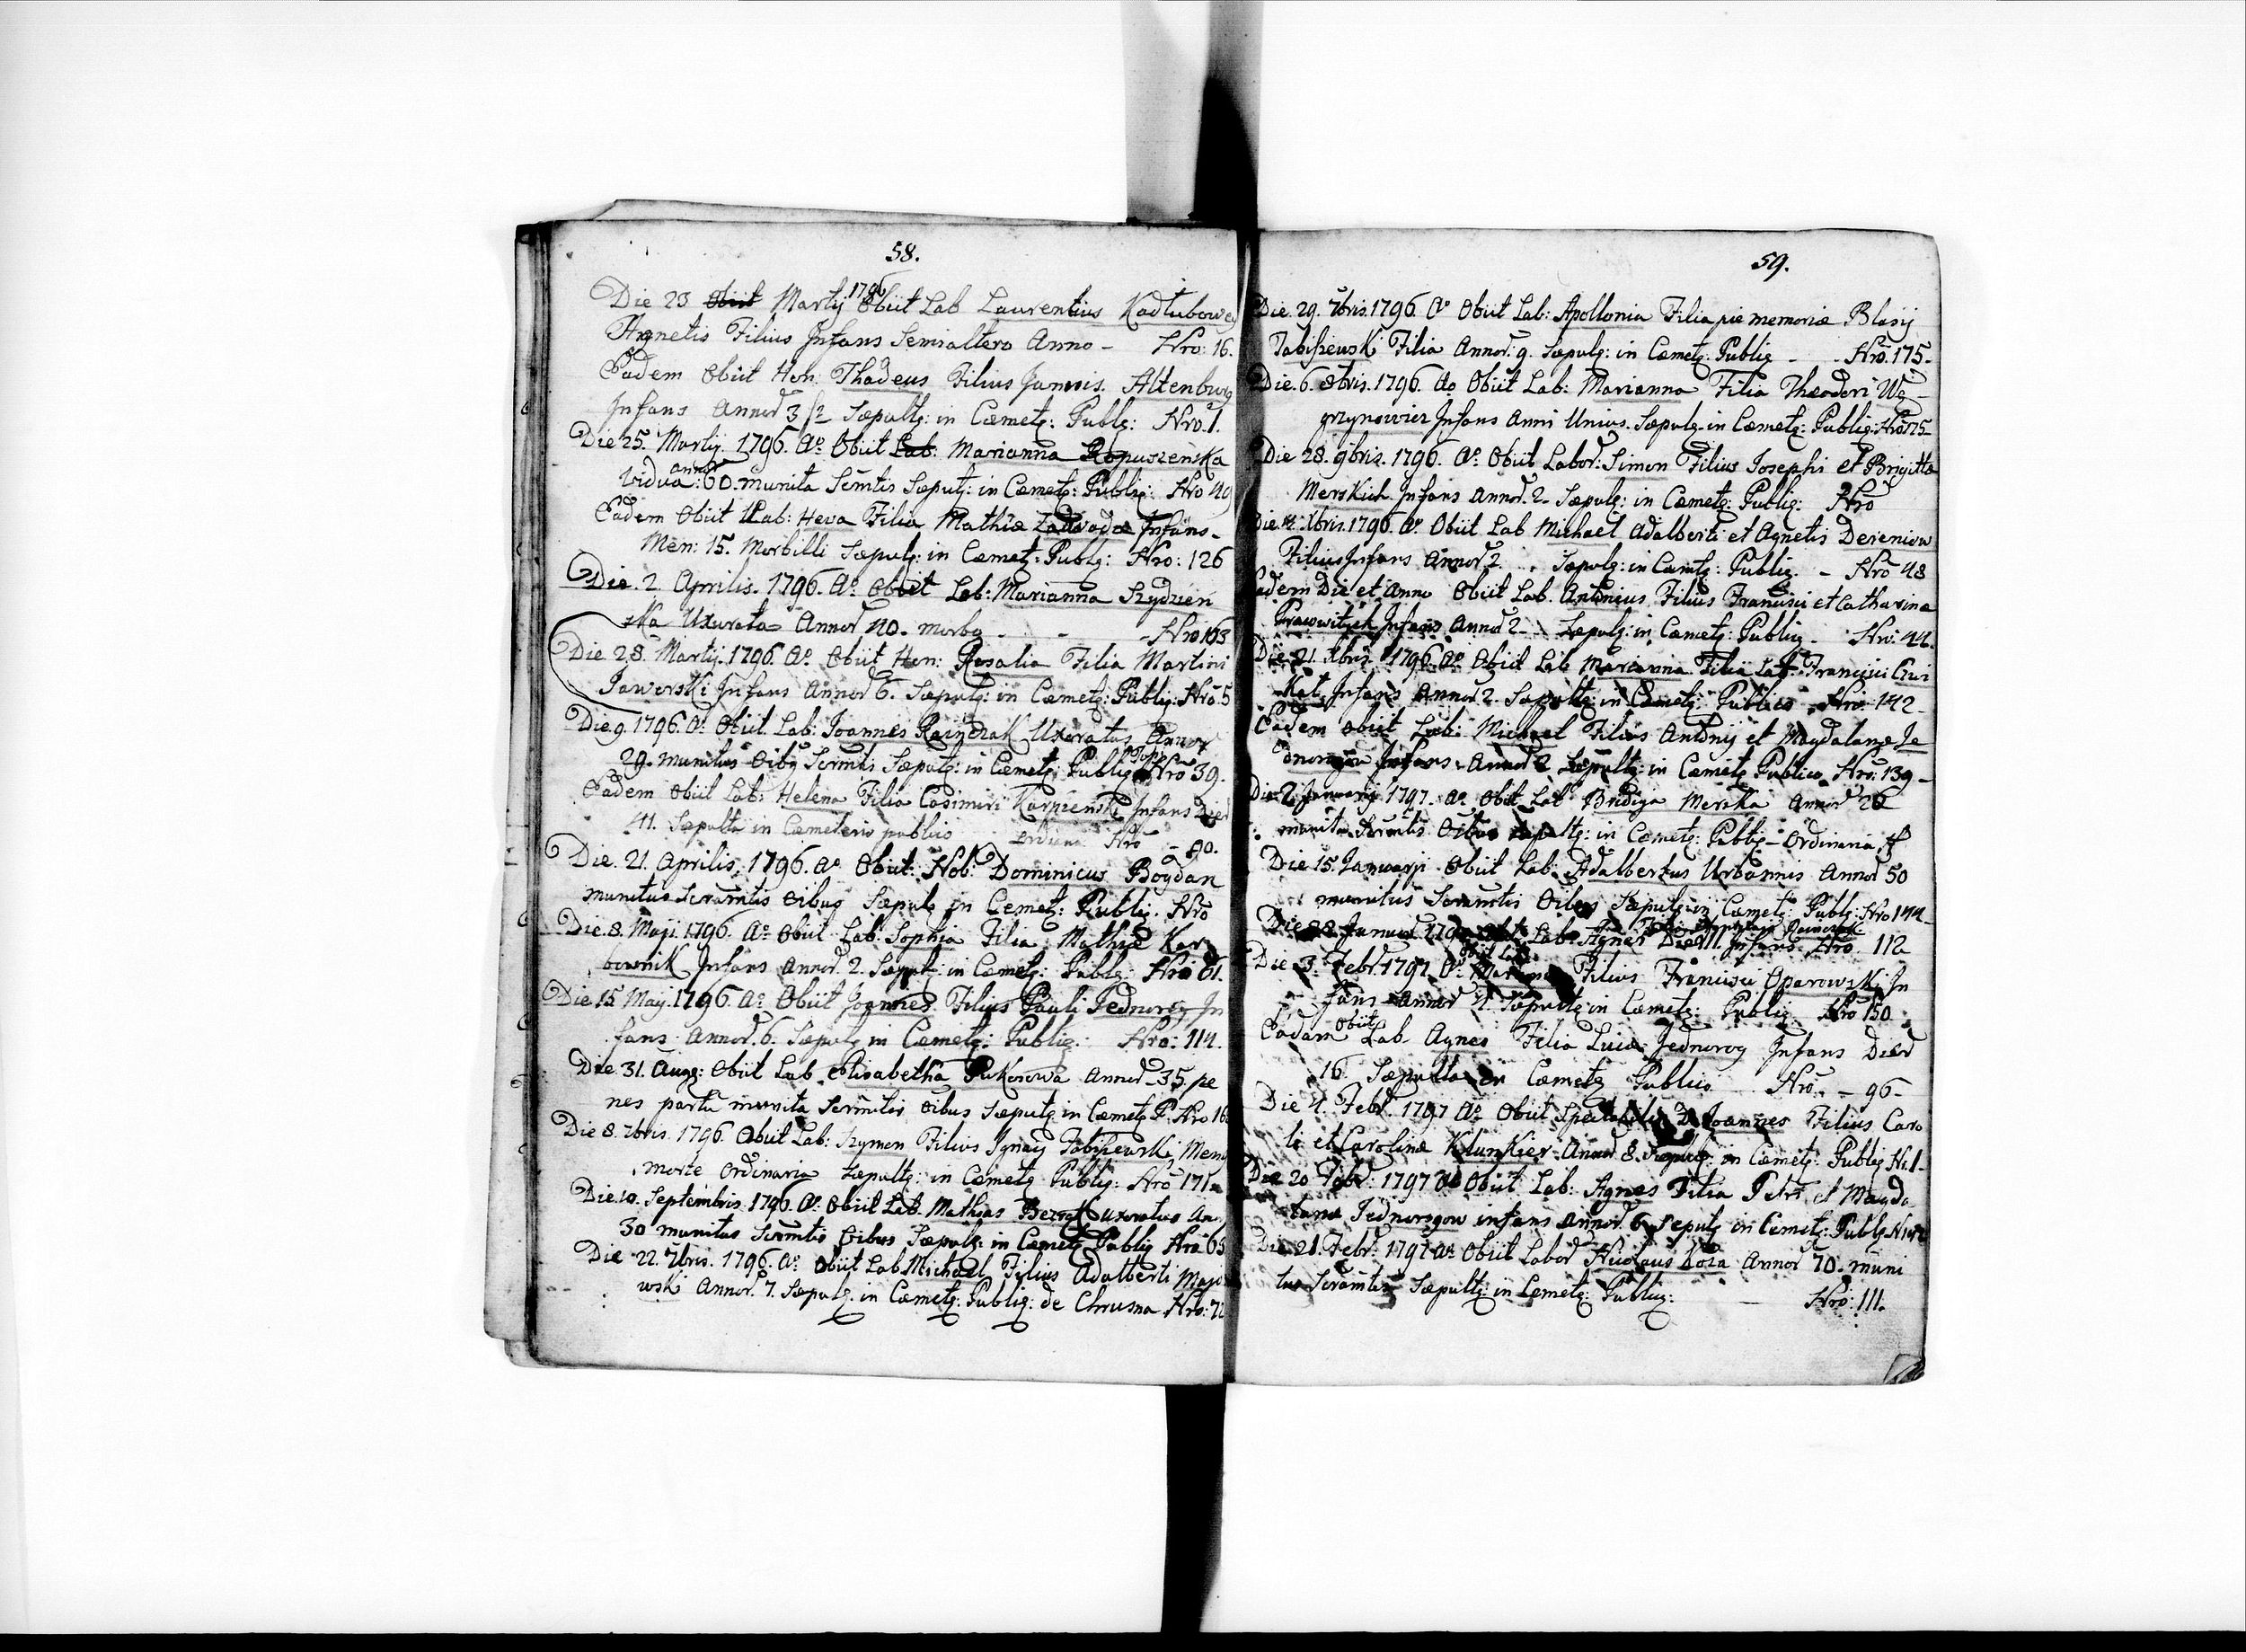 58.
Die 23 Obiit Martij 1796 Obiit Lab Laurentius Kadłubowey
Agnetis Filius Infans Semialtero Anno - Nro: 16.
Eadem Obiit Hon. Thadeus Filius Jannis. Altenburg
Infans Annor 3 Sæpultg: in Cæmetg: Publg: Nro. 1.
Die 25. Martij. 1796. Ao. Obiit Lab: Marianna Ropuszenska
Vidua annor: 60. munita Scrmtis Sæpulg: in Cæmetg: Publig: Nro 49
Eadem Obiit Lab: Heva Filia Mathiæ Zadwodæ Infans-
Men: 15. Morbilli Sæpulg: in Cæmetg: Publg: Nro: 126
Die. 2. Aprilis. 1796. Ao. Obiit Lab: Marianna Szydzien
ska Uxorata Annor 40. morbo - - - Nro 103
Die 28. Martij. 1796. Ao. Obiit Hon: Rosalia Filia Martini
Jawerski Infans Annor 6. Sæpulg: in Cæmetg: Publig: Nro. 5
Die 9. 1796. Ao. Obiit. Lab: Joannes Rainczak Uxoratus Annor
29. munitus Oibg Scrmtis Sæpulg: in Cæmetg: Publig Nro 39.
Eadem Obiit Lab: Helena Filia Casimiri Karpienski Infans Dier
41. Sæpulta in Cæmeterio publico Nro - 90.
Die. 21. Aprilis. 1796. Ao. Obiit: Nob: Dominicus Bogdan
munitus Scramtis Oibus Sæpulg in Cemetg: Publig. Nro
Die. 8. Maji. 1796. Ao. Obiit Lab: Sophia Filia Mathiæ Kar
bownik Infans Annor. 2. Sæpulg: in Cæmetg: Publg: Nro 61.
Die 15 Maij. 1796. Ao. Obiit Joannes Filius Pauli Jednorog In
fans Annor. 6. Sæpulg in Cæmetg: Publig: Nro: 114.
Die. 31. Augg: Obiit Lab. Elisabetha Pukosowa Annor. 35. pe
nes partu munita Scrmtis Oibus Sæpulg in Cæmetg P. Nro 16
Die 8. 7bris. 1796. Obiit Lab: Szymon Filius Ignacij Tabiszewski Men
morte Ordinaria Sæpultg: in Cæmetg Publig: Nro 171
Die. 10. Septembris. 1796. Ao. Obiit Lab. Mathias uxoratus An
30 munitus Scrmtis Oibus Sæpulg: in Cæmetg Publig Nro 65
Die 22. 7bris. 1796. Ao. Obiit Lab. Michael Filius Adalberti Maje
wski Annor. 7. Sæpulg. in Cæmetg: Publig: de Chrusna Nro: 72
59.
Die. 29. 7bris. 1796. Ao Obiit Lab: Apollonia Filia pie memoriæ Blasij
Tabiszewski Filia Annor: 9. Sæpulg: in Cæmetg: Publig - - Nro. 175-
Die. 6. 8bris. 1796. Ao Obiit Lab: Marianna Filia Theodori We-
grzynowicz Infans Anni Unius. Sæpulg. in Cæmetg: Publig: Nro 175
Die 28. 9bris. 1796. Ao. Obiit Labor: Simon Filius Josephi et Brigittæ
Merskich Infans Annor. 2. Sæpulg: in Cæmetg: Publig. Nro
Die. 14. Xbris. 1796. Ao. Obiit Lab Michael Adalberti et Agnetis Dereniow
Filius Infans Annor 2. Sæpulg: in Cæmtg: Publig. - Nro 48
Eadem Die et Anno Obiit Lab. Antonius Filius Francisci et Catharinæ
Infans Annor 2 - Sæpulg: in Cæmetg: Publig - Nro: 44.
Die. 21. Xbris 1796. Ao. Obiit Lab Marianna Filia Lab: Francisci Cwi
Kat Infans Annor 2. Sæpultg: in Cæmetg Publico Nro: 142-
Eadem obiit Lab: Michael Filius Antonij et Magdalenæ Je
dnorogow Infans Annor 2 Sæpultg: in Cæmetg Publico Nro: 139-
Die 2 Januarij 1797. Ao. Obiit Lab: Bridiga Merska Annor 26
munita Scrmtis Oibus Sæpultg: in Cæmetg: Publg - Ordinaria
Die 15. Januarji Obiit Lab: Adalbertus Urbannis Annor 50
munitus Scramtis Oibus Sæpulg: in Cæmetg: Publg: Nro 144
Die 28 Januar 1797 Obiit Lab. Agnes Dier 111. Infans Nro 112
Die 3. Febr. 1797. Ao. Obiit Lab: Filius Francisci Oparowski In
fans Annor 4. Sæpultg: in Cæmetg: Publig. Nro 150
Eadem Obiit Lab. Agnes Filia Lucæ Jednorog Infans Dier
16. Sæpulta in Cæmetg Publico Nro. - 96-
Die 4. Febr. 1797 Ao. Obiit Spectabilis D. Joannes Filius Caro
li et Carolinæ Klunkier Annor 8. Sæpulg: in Cæmetg: Publig N. 1-
Die 20 Febr. 1797 Ao Obiit Lab: Agnes Filia Petri et Magda
lenæ Jednorogow infans Annor. 6 Sepulg in Cemetg: Publg N
Die 21. Febr: 1797 Ao. Obiit Labor Nicolaus Koza Annor 70. muni
tus Scramtis Sæpultg: in Cemetg: Publig: - Nro: 111.